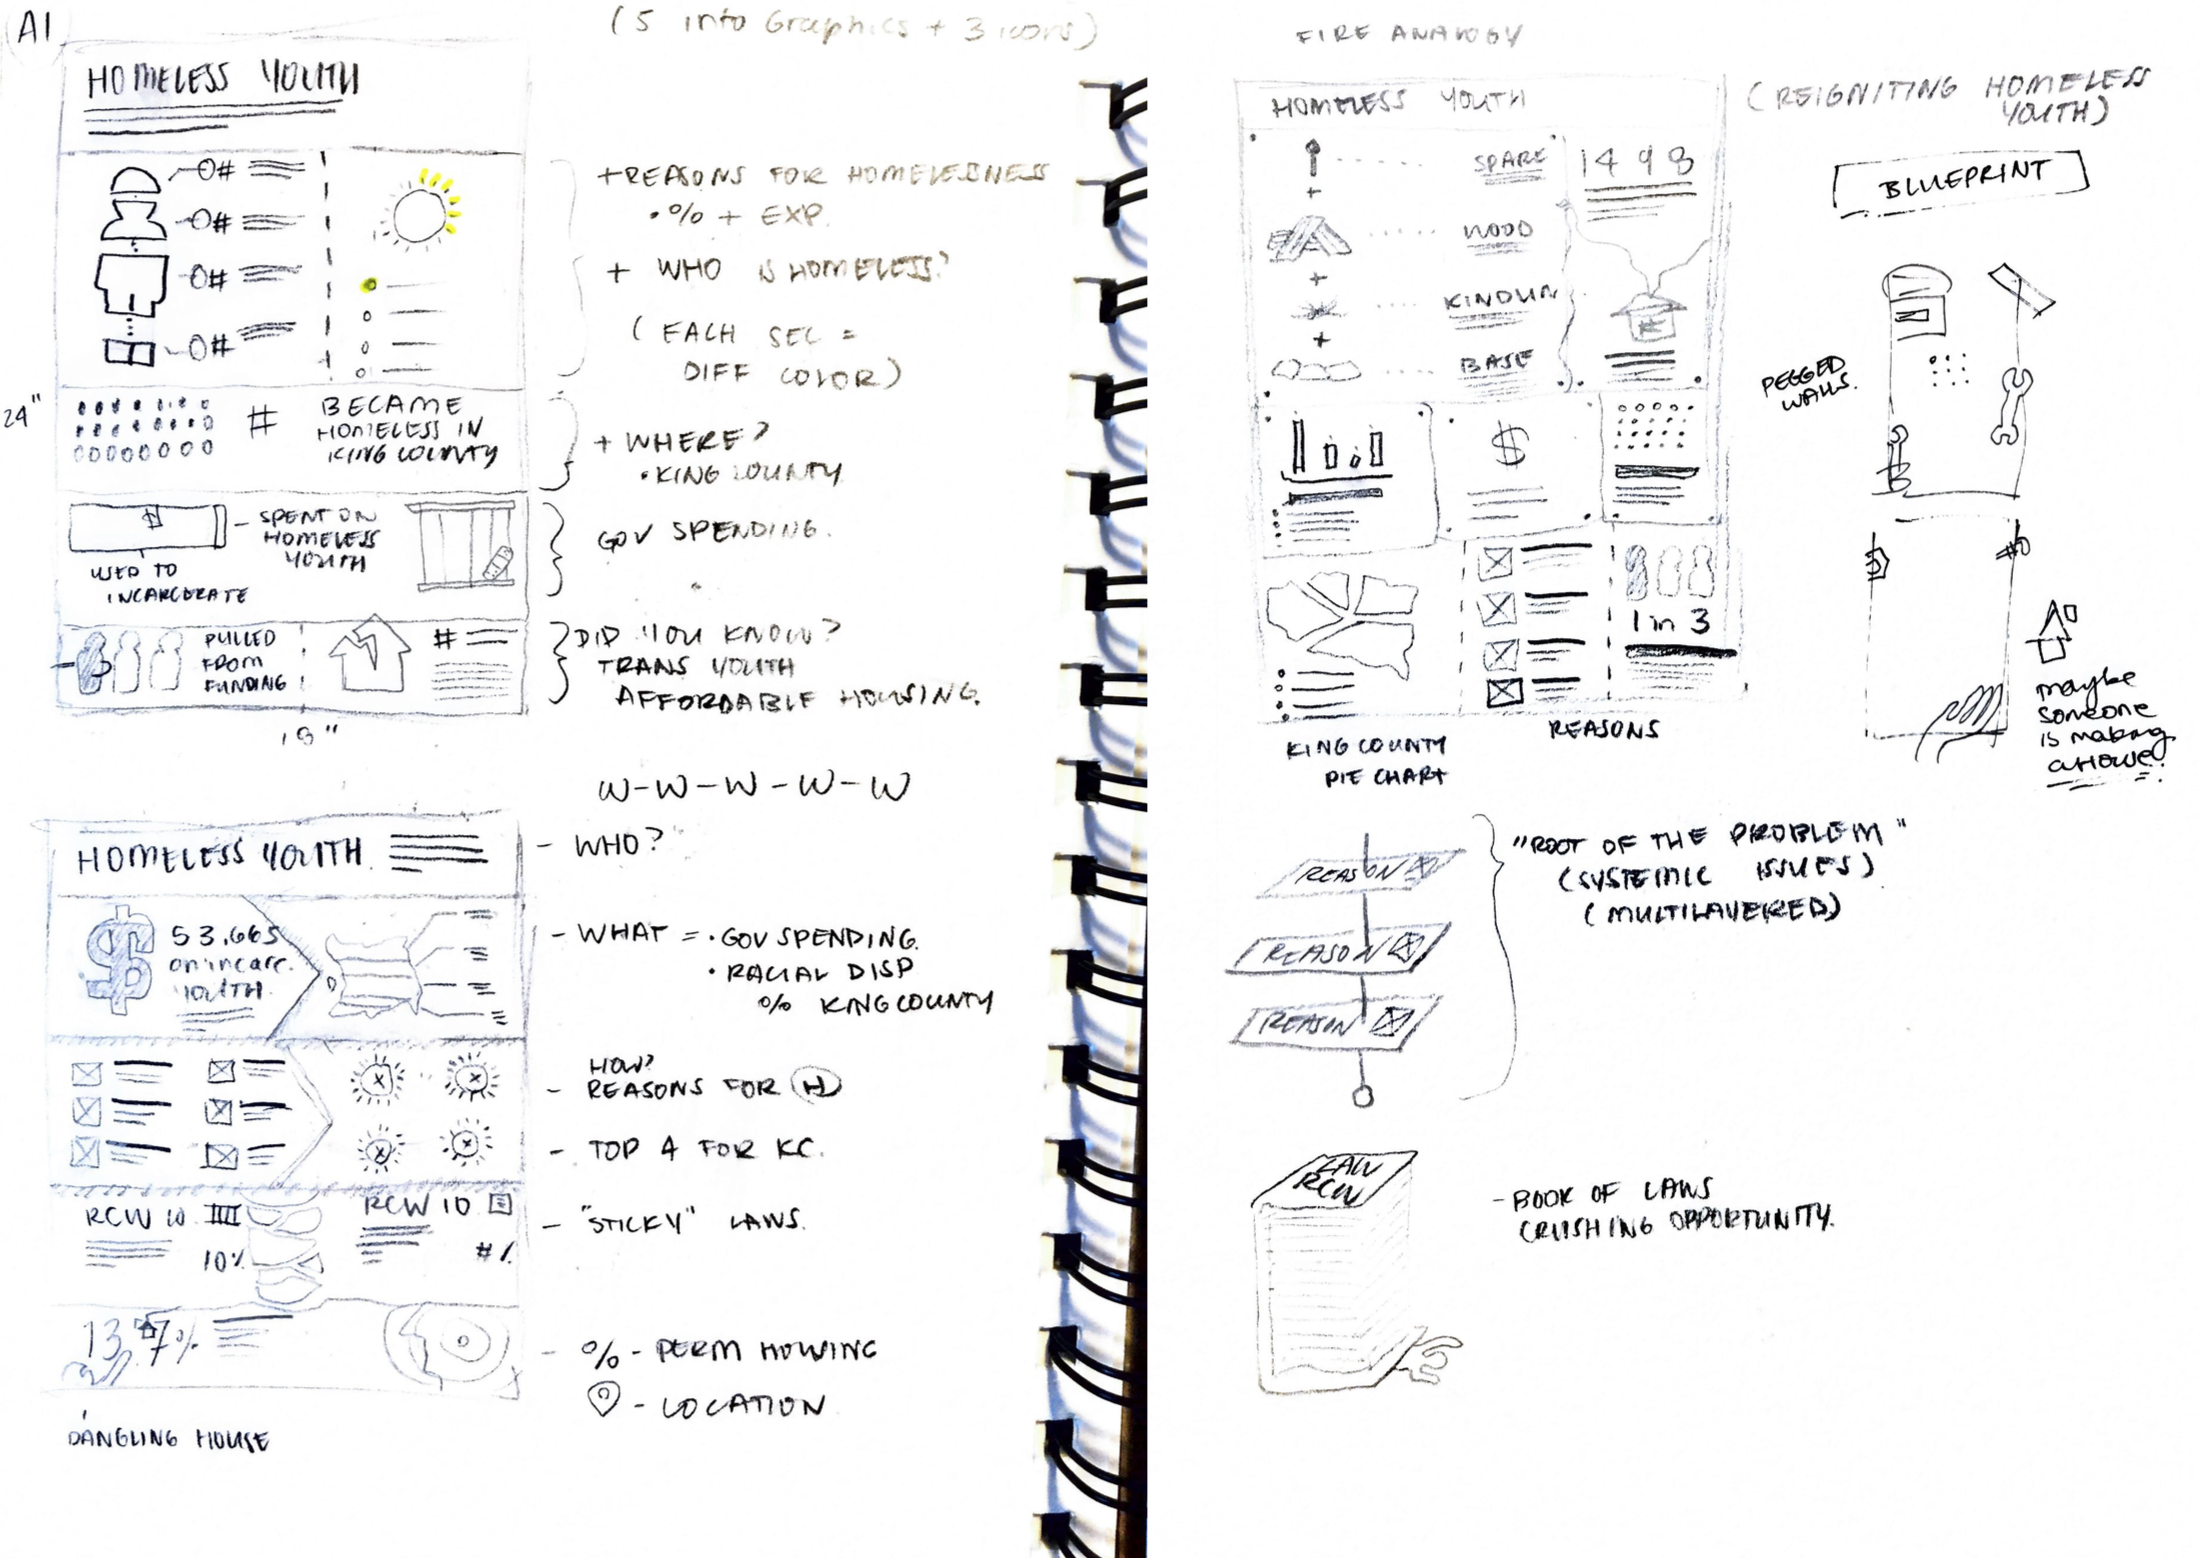 A1
(5 info Graphics + 3 icons)
HOMELESS YOUTH
0#
0#
0#
0#
+REASONS FOR HOMELESSNESS
• % + EXP.
+ WHO IS HOMELESS?
(EACH SEC =
DIFF COLOR)
24"
#
BECAME
HOMELESS IN
KING COUNTY
+ WHERE?
• KING COUNTY
$
- SPENT ON
HOMELESS
YOUTH
USED TO
INCARCERATE
GOV SPENDING.
PULLED
FROM
FUNDING
#
DID YOU KNOW?
TRANS YOUTH
AFFORDABLE HOUSING.
18"
W-W-W-W-W
HOMELESS YOUTH
- WHO?
$
53,665
on incarc.
YOUTH
- WHAT = • GOV SPENDING.
• RACIAL DISP
% KING COUNTY
HOW?
- REASONS FOR H
- TOP 4 FOR KC.
RCW 10
10%
RCW 10
#%
- "STICKY" LAWS.
13.7%
- % - PERM HOUSING
- LOCATION
DANGLING HOUSE
FIRE ANALOGY
HOMELESS YOUTH
(REIGNITING HOMELESS
YOUTH)
+
SPARE
1498
WOOD
+
KINDLIN
+
BASE
$
1 in 3
KING COUNTY
PIE CHART
REASONS
BLUEPRINT
PEGGED
WALLS.
maybe
someone
is making
a House?
REASON
REASON
REASON
"ROOT OF THE PROBLEM"
(SYSTEMIC ISSUES)
(MULTILAYERED)
LAW
RCW
- BOOK OF LAWS
CRUSHING OPPORTUNITY.